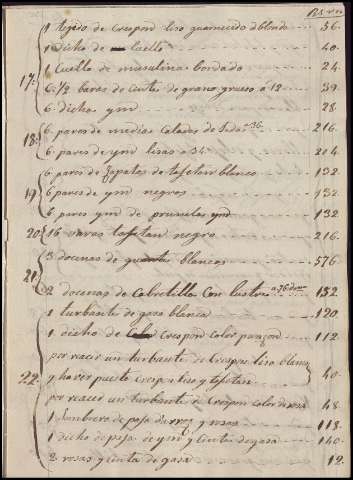 Rs von
1 tegido de Crespon liso guarnecido d blonda 56.
1 dicho de Cuello 40.
17. 1 Cuello de muselina bordado 24
6. 1/2 bares de Cinta de grano grueso a 12 39.
6. dichas ym 28.
18. 6. pares de medias Caladas de seda a 36 216.
6. pares de ym lisas a 34 204.
6. pares de zapatos de tafetan blanco 132.
19 6 pares de ym negros 132.
6. pares ym de prunelas ym 132
20 16 varas tafetan negro 216.
21 3 docenas de guantes blancos 576.
2 docenas de Cabretilla Con lustre a 76 132
1 turbante de gasa blanca 120.
1 dicho de Crespon color punzon 112
por hacer un turbante de Crespon liso blanco
22. y haver puesto Crespon liso y tafetan 40.
por hacer un turbante de Crespon color de rosa 48.
1 Sombrero de paja de y rosas 118.
1 dicho de paja de ym y Cinta de gasa 140.
2. rosas y cinta de gasa 12.